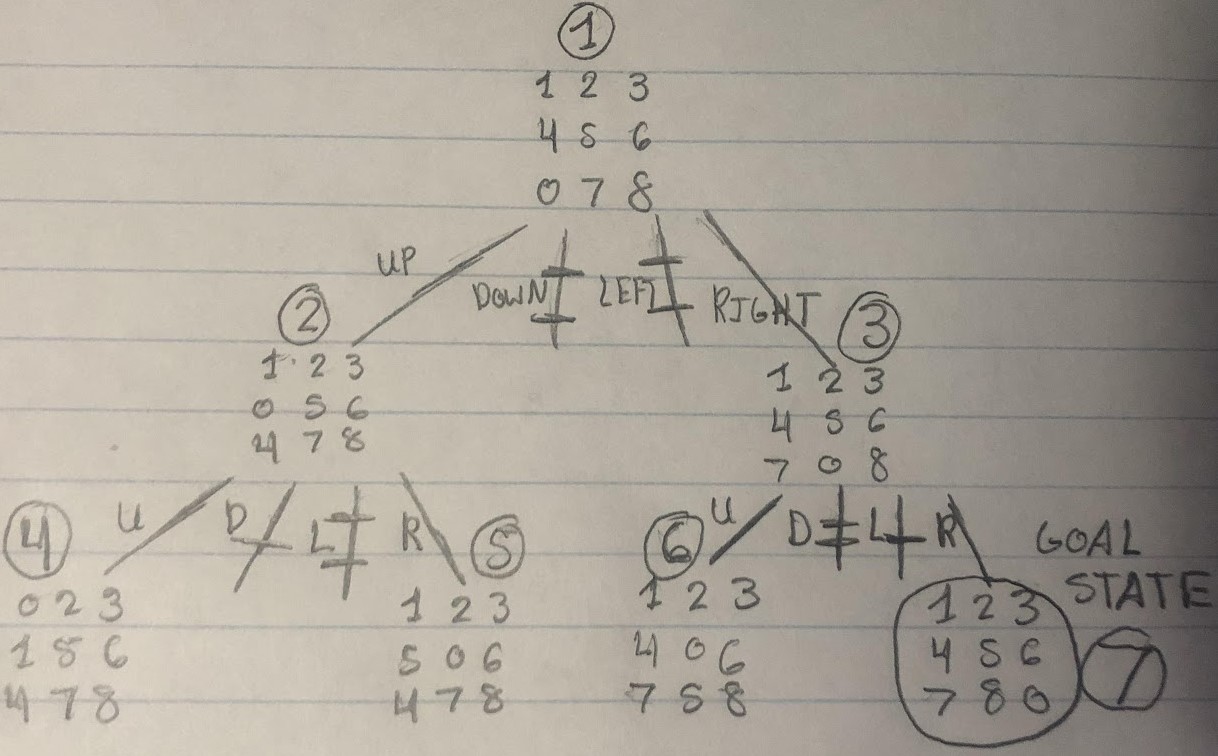 1
1 2 3
4 5 6
0 7 8
UP DOWN LEFT RIGHT
2
1 2 3
0 5 6
4 7 8
3
1 2 3
4 5 6
7 0 8
U D L R
4
0 2 3
1 5 6
4 7 8
5
1 2 3
5 0 6
4 7 8
U D L R
6
1 2 3
4 0 6
7 5 8
GOAL
STATE
7
1 2 3
4 5 6
7 8 0